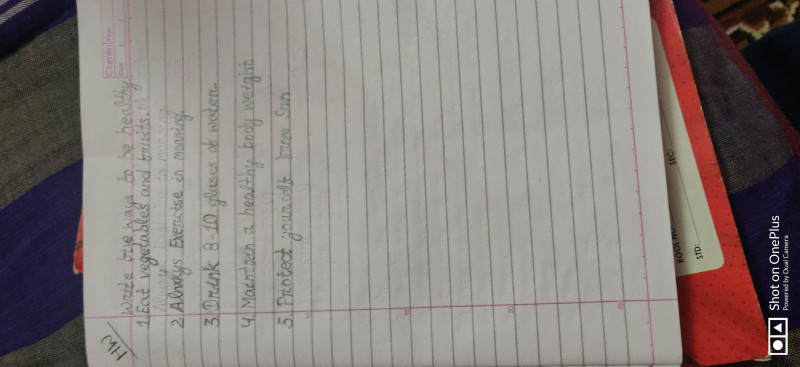 Camlin Page
Date
HW
Write the ways to be healthy
1. Eat vegetables and fruits.
2. Always Exercise in morning.
3. Drink 8-10 glases of water.
4. Maintain a healthy body weight
5. Protect yourself from Sun
ROLL NO.
STD:
SEC:
Shot on OnePlus
Powered by Dual Camera